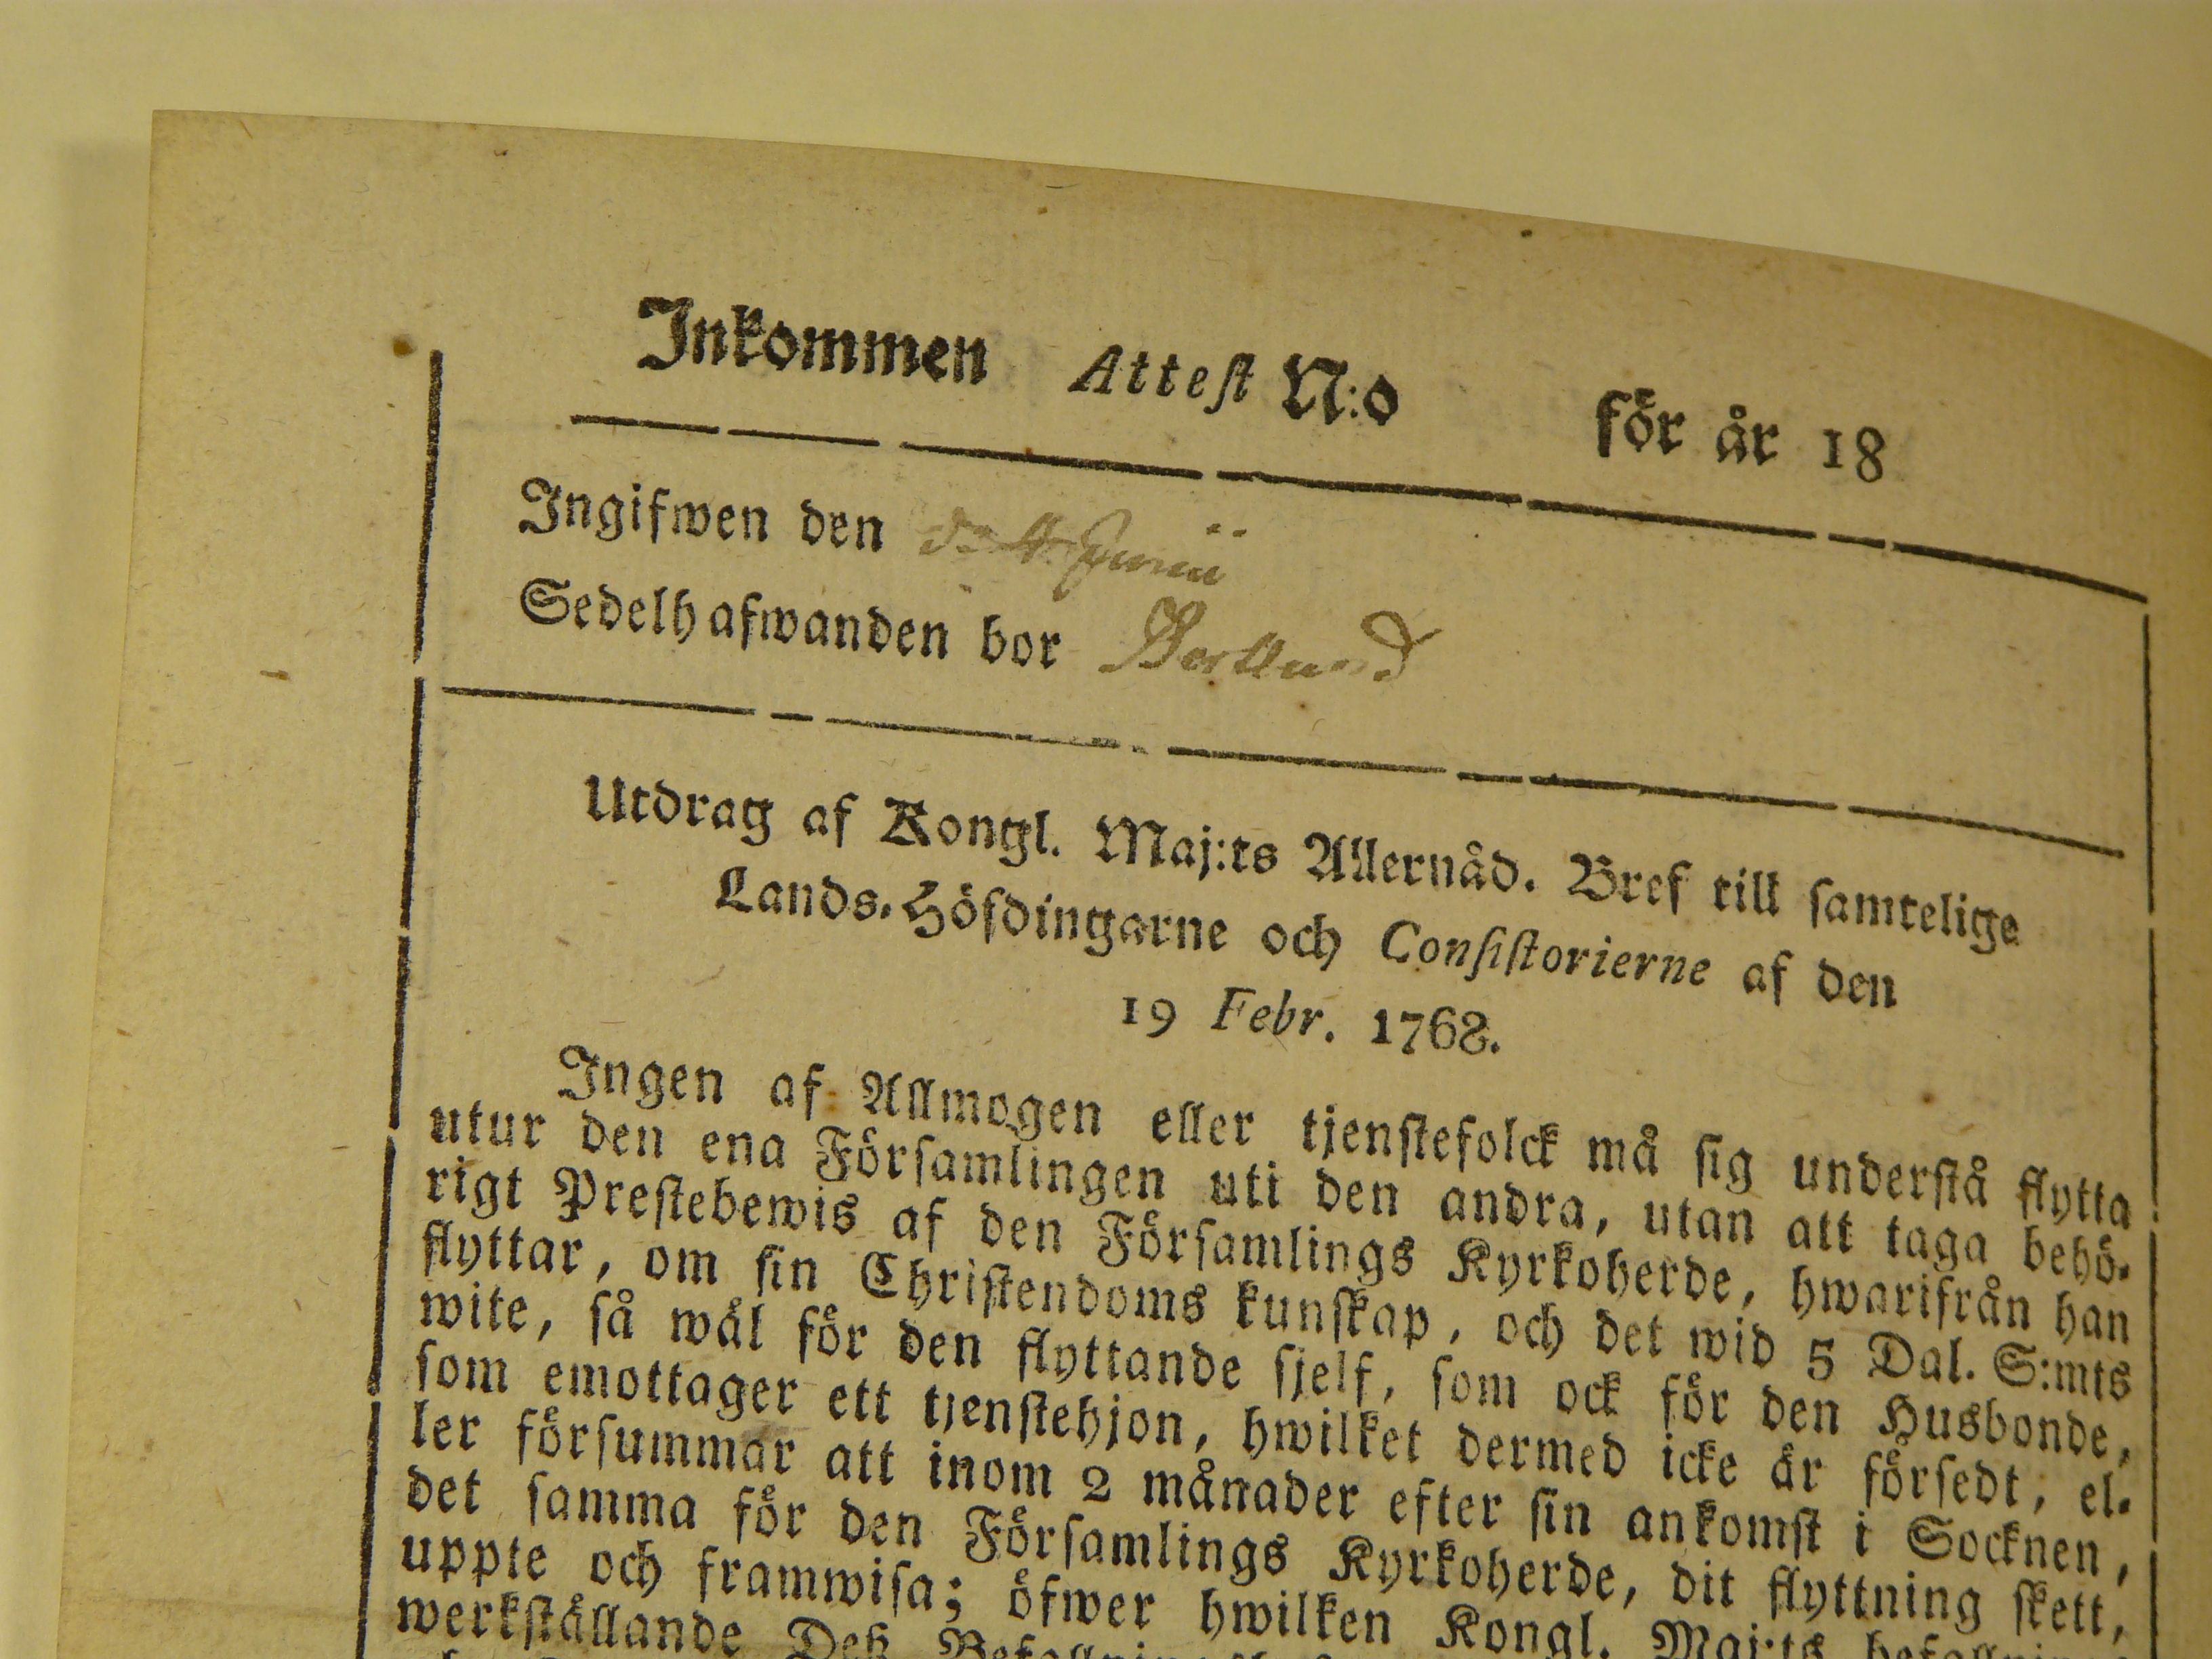 Inkommen Attest N:o för år 18
Ingifwen den d. 4 Junii
Sedelhafwanden bor
Utdrag af Kongl. Maj:ts Allernåd. Bref till samtelige
Lands-Höfdingarne och Consistorierne af den
19 Febr. 1768.
Ingen af Allmogen eller tjenstefolck må sig understå flytta
utur den ena Församlingen uti den andra, utan att taga behö-
rigt Prestebewis af den Församlings Kyrkoherde, hwarifrån han
flyttar, om sin Christendoms kunskap, och det wid 5 Dal. S:mts
wite, så wäl för den flyttande sjelf, som ock för den Husbonde,
som emottager ett tjenstehjon, hwilket dermed icke är försedt, el-
ler försummar att inom 2 månader efter sin ankomst i Socknen,
det samma för den Församlings Kyrkoherde, dit flyttning skett,
uppte och framwisa; öfwer hwilken Kongl. Maj:ts befallning
werkställande Deß